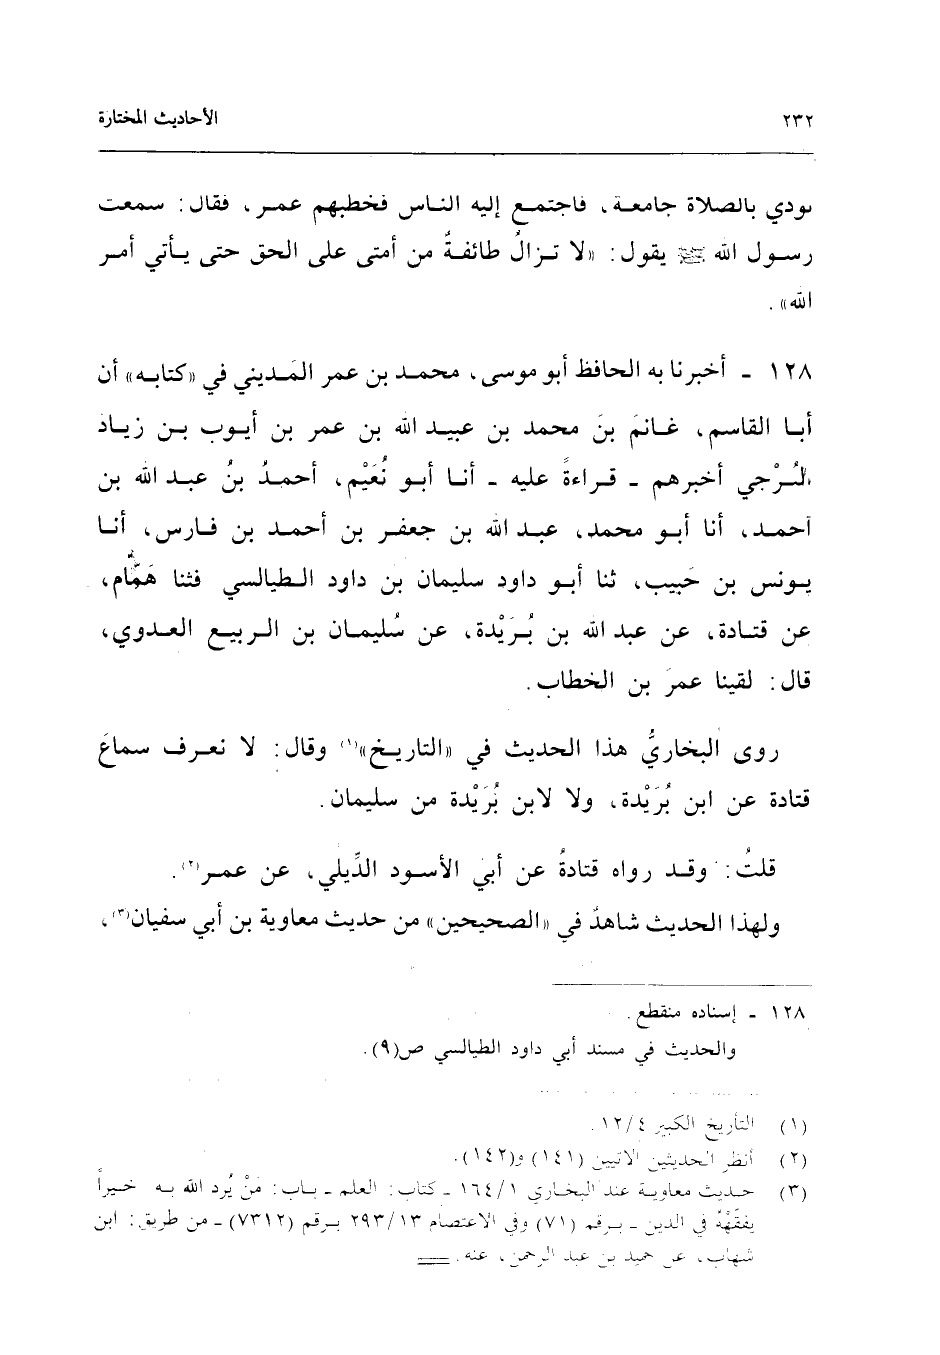 ٢٣٢ الأحاديث المختارة
نودي بالصلاة جامعة، فاجتمع إليه الناس فخطبهم عمر، فقال: سمعت
رسول الله ﷺ يقول: «لا تزالُ طائفةٌ من أمتي على الحق حتى يأتي أمر
الله».
١٢٨ - أخبرنا به الحافظ أبو موسى، محمد بن عمر المَديني في «كتابه» أن
أبا القاسم، غانمَ بنَ محمد بن عبيد الله بن عمر بن أيوب بن زياد
البُرْجي أخبرهم - قراءةً عليه - أنا أبو نُعَيْم، أحمدُ بنُ عبد الله بن
أحمد، أنا أبو محمد، عبد الله بن جعفر بن أحمد بن فارس، أنا
يونس بن حَبيب، ثنا أبو داود سليمان بن داود الطيالسي فثنا هَمَّام،
عن قتادة، عن عبد الله بن بُرَيْدة، عن سُليمان بن الربيع العدوي،
قال: لقينا عمرَ بن الخطاب.
روى البخاريُّ هذا الحديث في «التاريخ»(١) وقال: لا نعرف سماعَ
قتادة عن ابن بُرَيْدة، ولا لابن بُرَيْدة من سليمان.
قلتُ: وقد رواه قتادةُ عن أبي الأسود الدِّيلي، عن عمر(٢).
ولهذا الحديث شاهدٌ في «الصحيحين» من حديث معاوية بن أبي سفيان(٣)،
١٢٨ - إسناده منقطع.
والحديث في مسند أبي داود الطيالسي ص(٩).
(١) التأريخ الكبير ١٢/٤.
(٢) أنظر الحديثين الآتيين (١٤١) و(١٤٢).
(٣) حديث معاوية عند البخاري ١٦٤/١ - كتاب: العلم - باب: مَنْ يُرد الله به خيراً
يفقّهْهُ في الدين - برقم (٧١) وفي الاعتصام ٢٩٣/١٣ برقم (٧٣١٢) - من طريق: ابن
شهاب، عن حميد بن عبد الرحمن، عنه. =